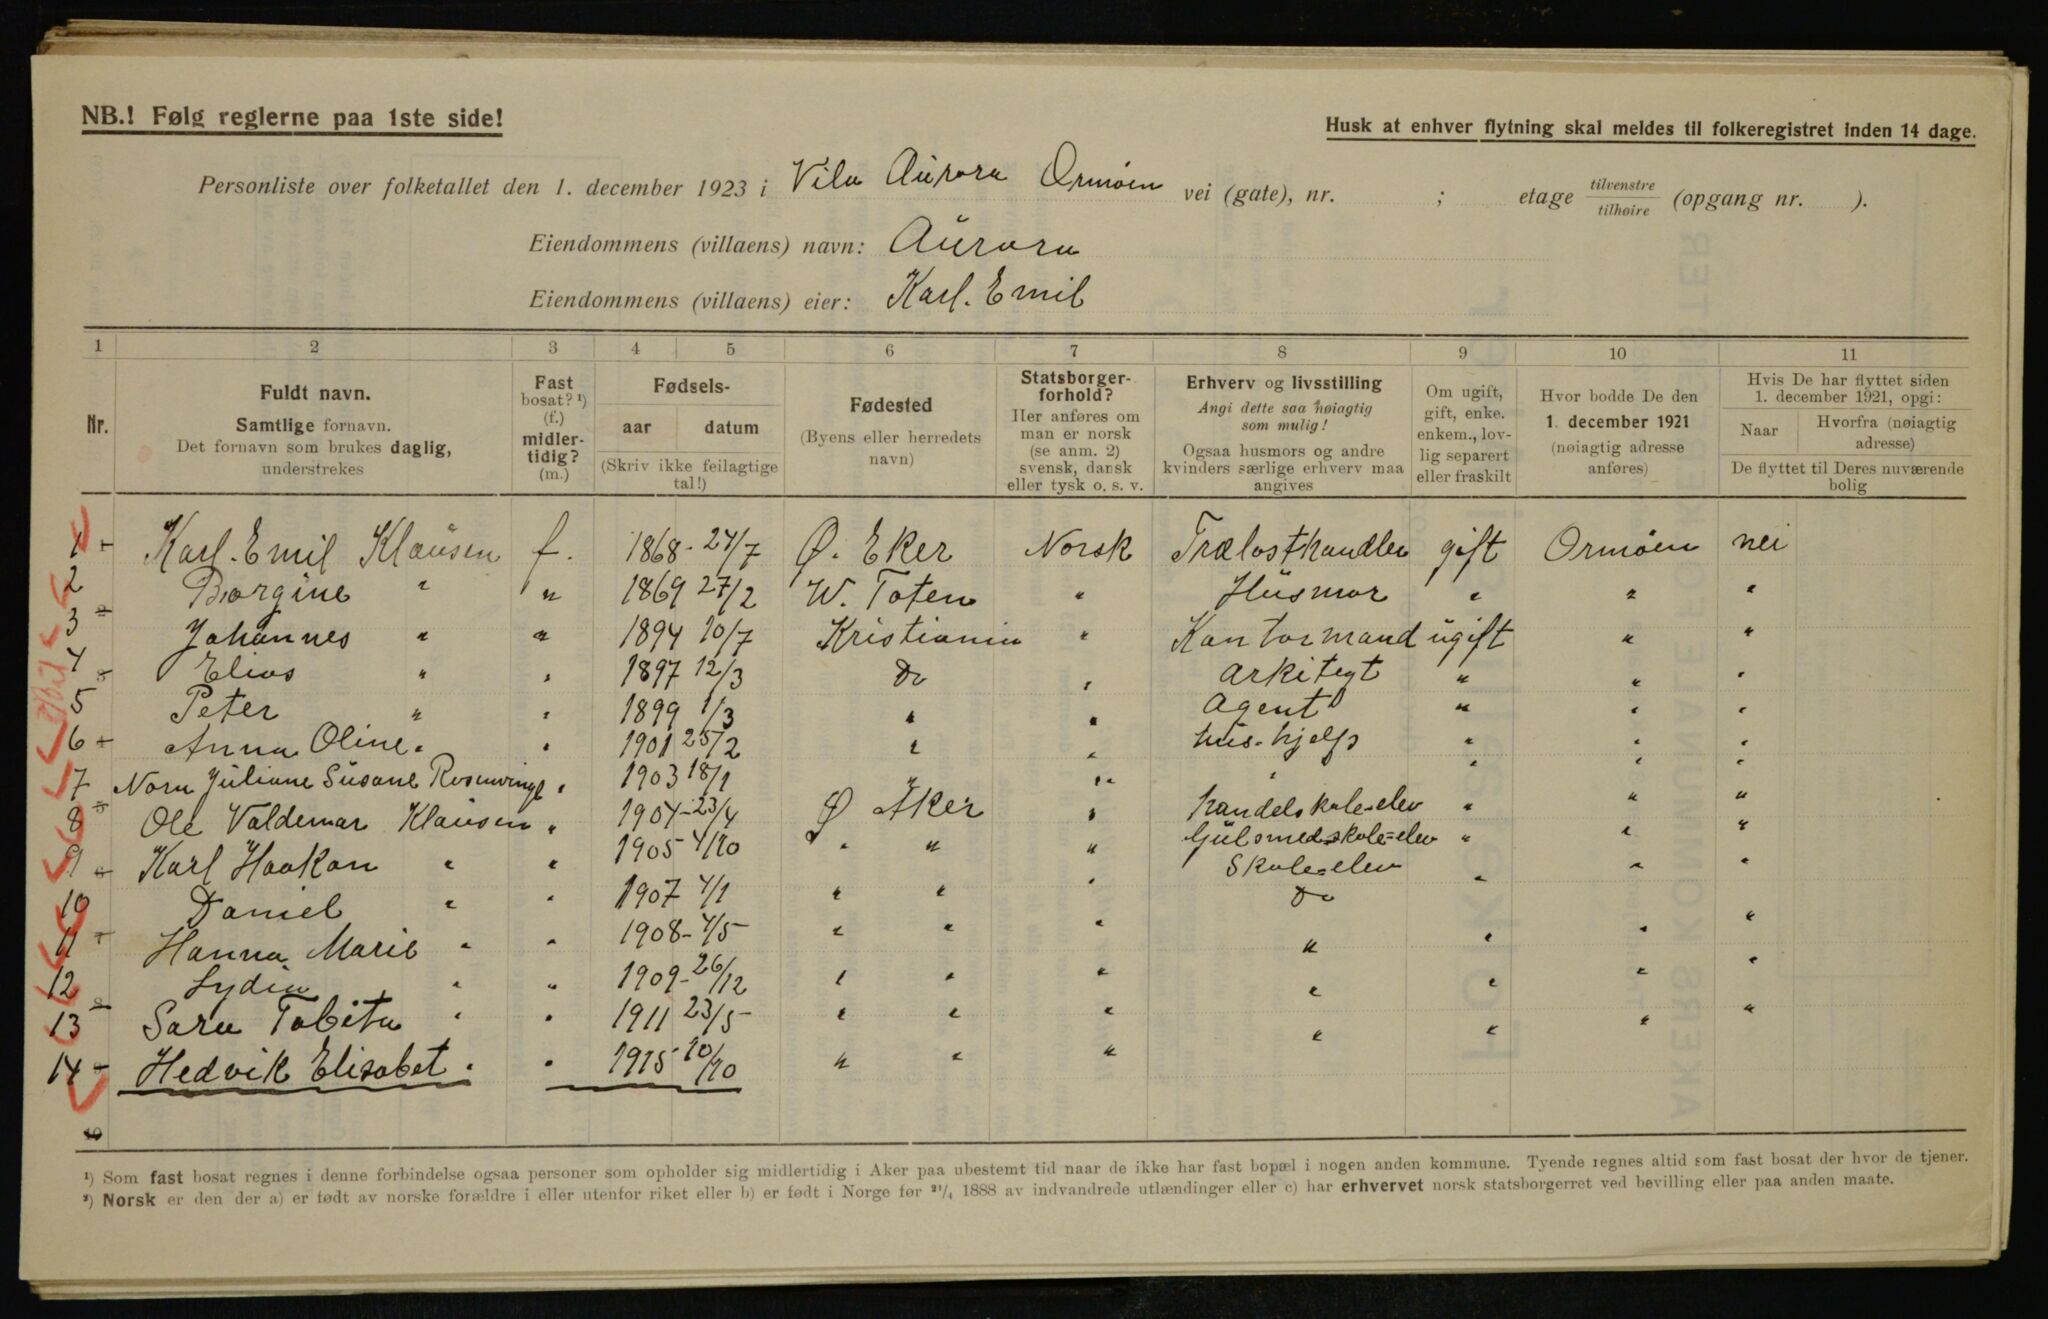 NB.! Følg reglerne paa 1ste side!
Husk at enhver flytning skal meldes til folkeregistret inden 14 dage.
Personliste over folketallet den 1. december 1923 i Vila Aurora Ormøen vei (gate), nr. ; etage tilvenstre / tilhøire (opgang nr. ).
Eiendommens (villaens) navn: Aurora
Eiendommens (villaens) eier: Karl. Emil
1 2 3 4 5 6 7 8 9 10 11
Nr.
Fuldt navn.
Samtlige fornavn.
Det fornavn som brukes daglig,
understrekes
Fast
bosat? ¹)
(f.)
midler-
tidig?
(m.)
Fødsels-
aar datum
(Skriv ikke feilagtige
tal!)
Fødested
(Byens eller herredets
navn)
Statsborger-
forhold?
Her anføres om
man er norsk
(se anm. 2)
svensk, dansk
eller tysk o. s. v.
Erhverv og livsstilling
Angi dette saa nøiagtig
som mulig!
Ogsaa husmors og andre
kvinders særlige erhverv maa
angives
Om ugift,
gift, enke.
enkem., lov-
lig separert
eller fraskilt
Hvor bodde De den
1. december 1921
(nøiagtig adresse
anføres)
Hvis De har flyttet siden
1. december 1921, opgi:
Naar
Hvorfra (nøiagtig
adresse)
De flyttet til Deres nuværende
bolig
1 Karl. Emil Klausen f. 1868- 24/7 Ø. Eker Norsk Trælasthandler gift Ormøen nei
2 Borgine " " 1869 27/2 W. Toten " Husmor " " "
3 Johannes " " 1894 10/7 Kristiania " Kontormand ugift " "
4 Elias " " 1897 12/3 Do " Arkitegt " " "
5 Peter " " 1899 1/3 " " Agent " " "
6 Anna Oline " " 1901 25/2 " " hus-hjelp " " "
7 Nora Juliane Susane Rosenvinge " 1903 18/1 " " " " " "
8 Ole Valdemar Klausen " 1904- 23/4 Ø Aker " handelskole=elev " " "
9 Karl Haakon " " 1905 4/10 " " " Gulsmedskole=elev " " "
10 Daniel " " 1907 4/1 " " " Skole=elev " " "
11 Hanna Marie " " 1908- 4/5 " " " Do " " "
12 Lydia " " 1909- 26/12 " " " " " " "
13 Sara Tabita " " 1911 23/5 " " " " " " "
14 Hedvik Elisabet " " 1915 10/10 " " " " " " "
¹) Som fast bosat regnes i denne forbindelse ogsaa personer som opholder sig midlertidig i Aker paa ubestemt tid naar de ikke har fast bopæl i nogen anden kommune. Tyende regnes altid som fast bosat der hvor de tjener.
²) Norsk er den der a) er født av norske forældre i eller utenfor riket eller b) er født i Norge før 21/4 1888 av indvandrede utlændinger eller c) har erhvervet norsk statsborgerret ved bevilling eller paa anden maate.